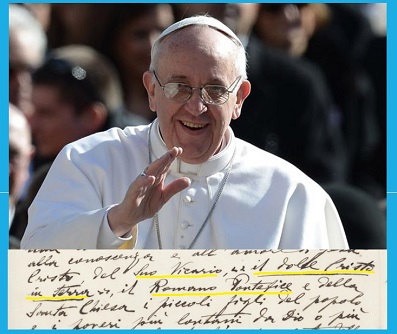 alla conoscenza e all'amore di Gesù
Cristo del Suo Vicario, il dolce Cristo
in terra, il Romano Pontefice e della
Santa Chiesa i piccoli figli del popolo
i poveri più lontani da Dio o più